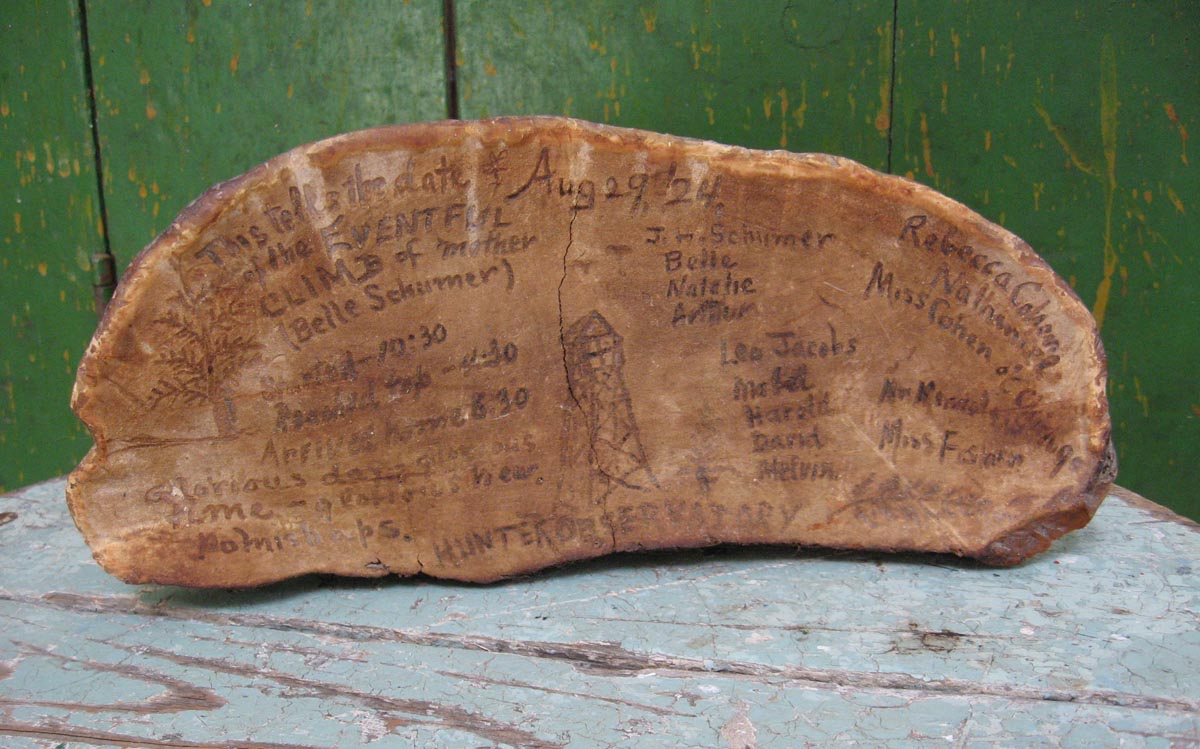 This tells the date of Aug 29, '24.
of the EVENTFUL
CLIMB of mother
(Belle Schumer)
Started - 10:30
Reached top - 4:30
Arrived home 8:30
Glorious day - glorious
time - glorious view.
No mishaps.
HUNTER OBSERVATORY
J. H. Schumer
Belle
Natalie
Arthur
Leo Jacobs
Mabel
Harold
David
Melvin
Rebecca
Nathaniel
Miss Cohen
Miss Fishin